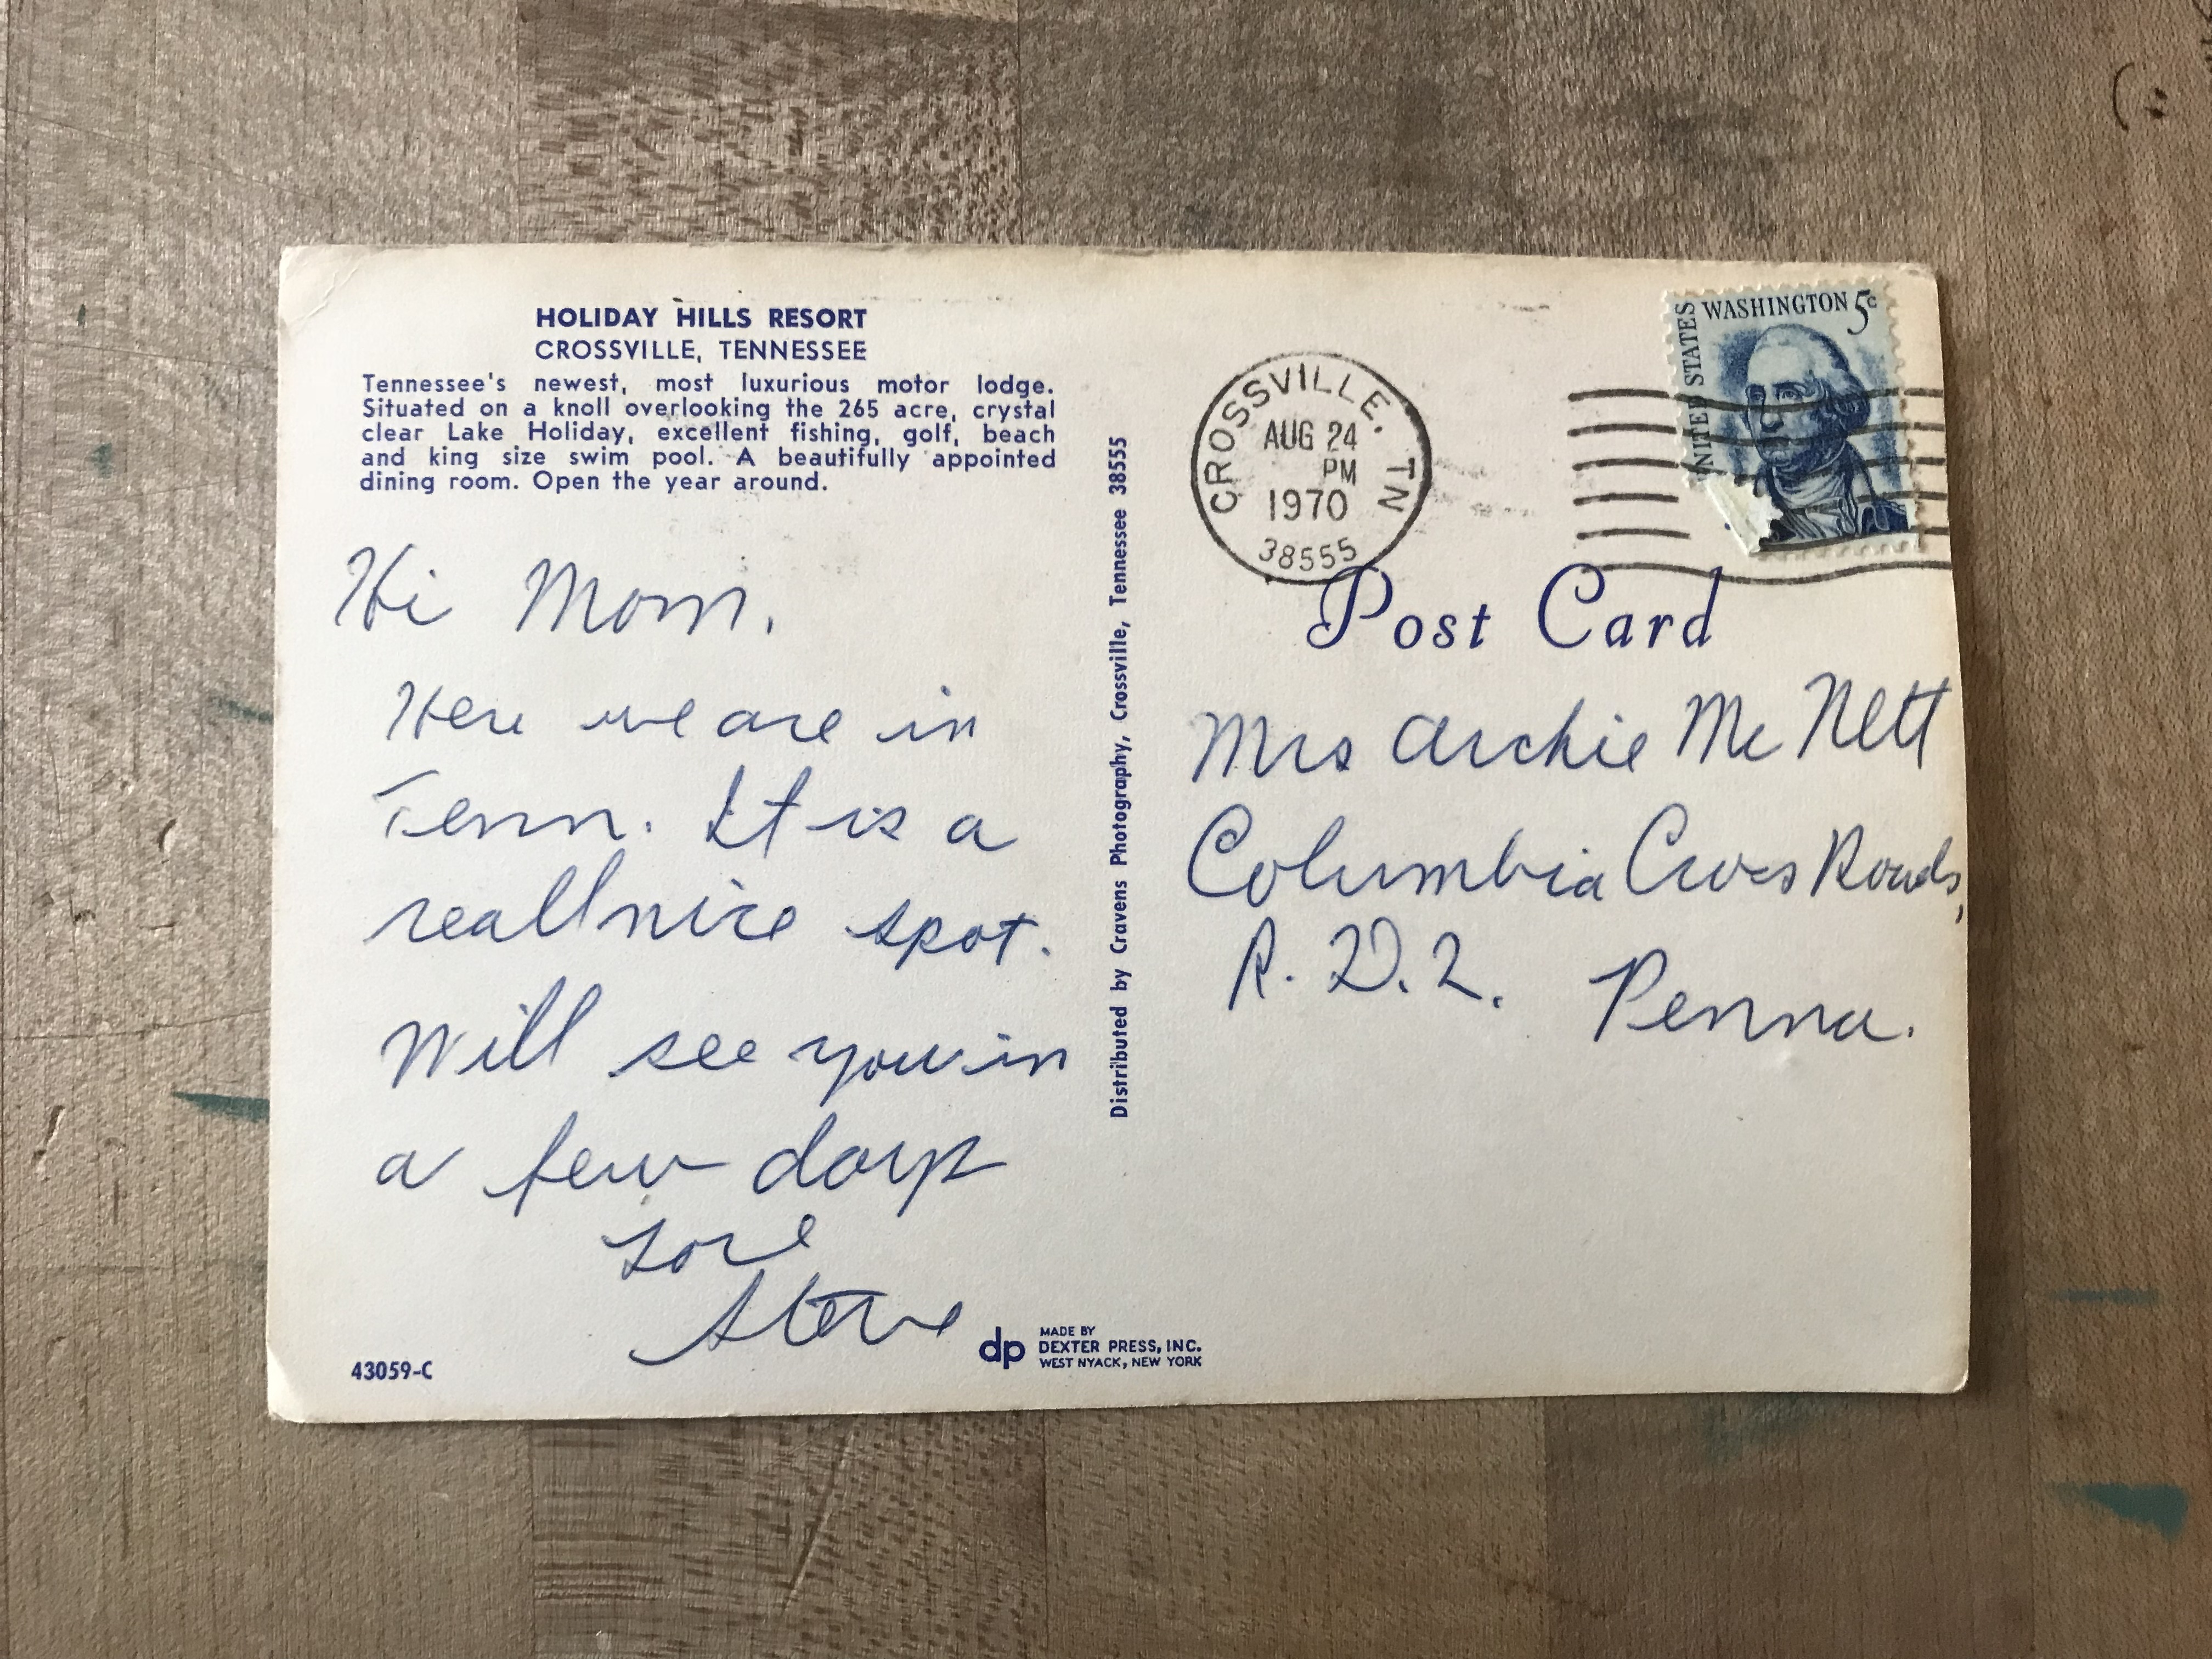 HOLIDAY HILLS RESORT
CROSSVILLE, TENNESSEE
Tennessee's newest, most luxurious motor lodge.
Situated on a knoll overlooking the 265 acre, crystal
clear Lake Holiday, excellent fishing, golf, beach
and king size swim pool. A beautifully appointed
dining room. Open the year around.
Hi Mom,
Here we are in
Tenn. It is a
reall nice spot.
Will see you in
a few days
Love
Steve
43059-C
dp
MADE BY
DEXTER PRESS, INC.
WEST NYACK, NEW YORK
Distributed by Cravens Photography, Crossville, Tennessee 38555
CROSSVILLE, TN
AUG 24
PM
1970
38555
UNITED STATES
WASHINGTON 5c
Post Card
Mrs Archie Mc Nett
Columbia Cross Roads,
R. D. 2. Penna.